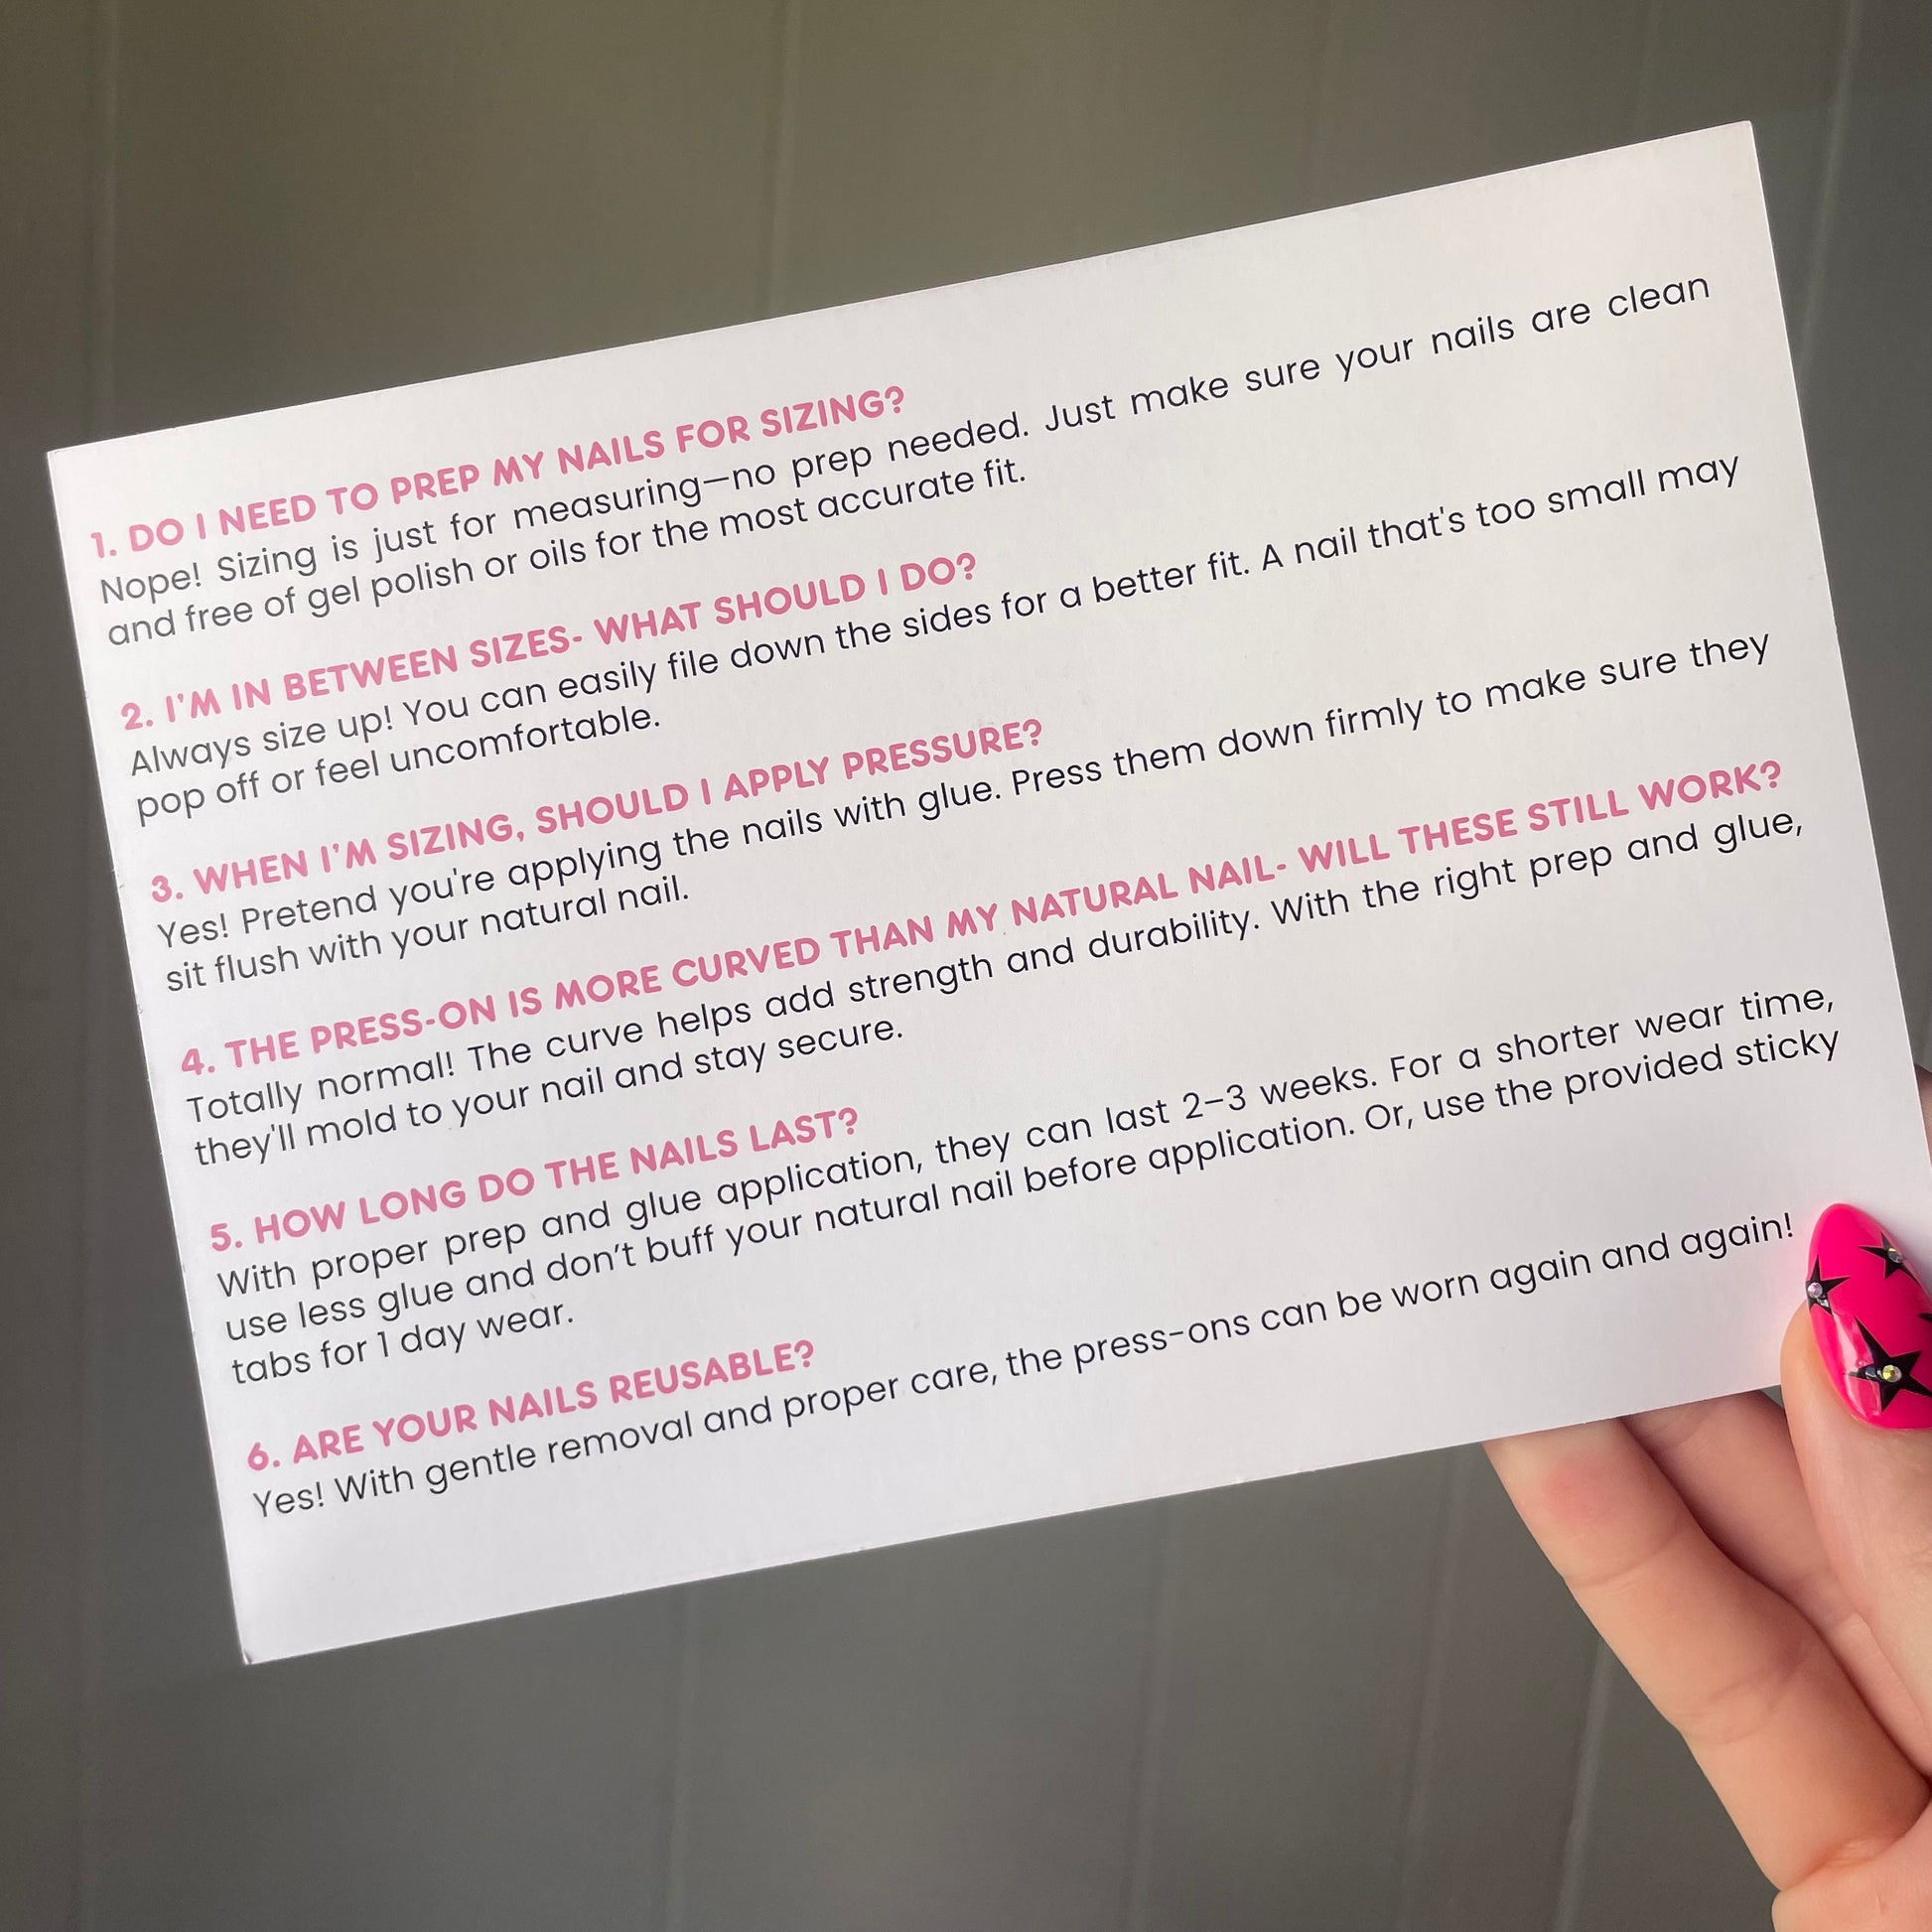 1. DO I NEED TO PREP MY NAILS FOR SIZING?
Nope! Sizing is just for measuring—no prep needed. Just make sure your nails are clean
and free of gel polish or oils for the most accurate fit.
2. I'M IN BETWEEN SIZES- WHAT SHOULD I DO?
Always size up! You can easily file down the sides for a better fit. A nail that's too small may
pop off or feel uncomfortable.
3. WHEN I'M SIZING, SHOULD I APPLY PRESSURE?
Yes! Pretend you're applying the nails with glue. Press them down firmly to make sure they
sit flush with your natural nail.
4. THE PRESS-ON IS MORE CURVED THAN MY NATURAL NAIL- WILL THESE STILL WORK?
Totally normal! The curve helps add strength and durability. With the right prep and glue,
they'll mold to your nail and stay secure.
5. HOW LONG DO THE NAILS LAST?
With proper prep and glue application, they can last 2–3 weeks. For a shorter wear time,
use less glue and don’t buff your natural nail before application. Or, use the provided sticky
tabs for 1 day wear.
6. ARE YOUR NAILS REUSABLE?
Yes! With gentle removal and proper care, the press-ons can be worn again and again!